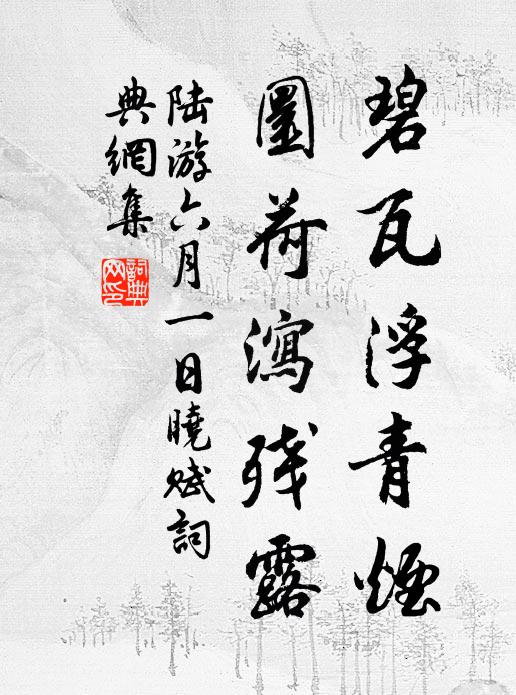 碧瓦浮青煙
圓荷瀉残露
陸游六月一日曉賦詞
典網集
詞典
网印